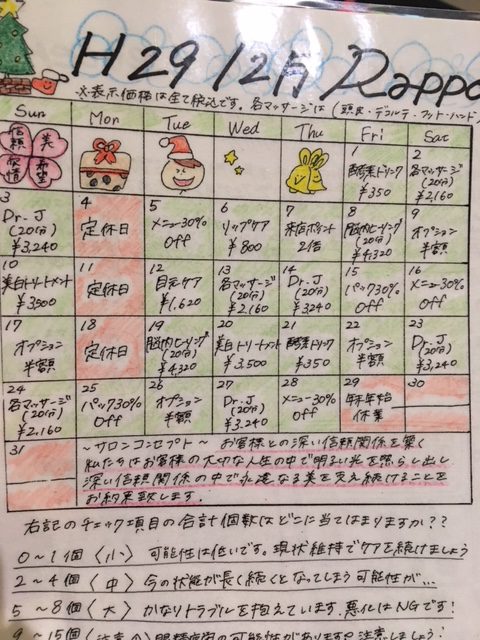 H29 12月 Rappo
※表示価格は全て税込です。各マッサージは(頭皮・デコルテ・フット・ハンド)
Sun Mon Tue Wed Thu Fri Sat
信頼 美 友情 希望
1 酵素ドリンク ¥350
2 各マッサージ (20分) ¥2,160
3 Dr.J (20分) ¥3,240
4 定休日
5 メニュー30% Off
6 リップケア ¥800
7 来店ポイント 2倍
8 脳内ヒーリング (20分) ¥4,320
9 オプション 半額
10 美白トリートメント ¥3,500
11 定休日
12 目元ケア ¥1,620
13 各マッサージ (20分) ¥2,160
14 Dr.J (20分) ¥3,240
15 パック30% Off
16 メニュー30% Off
17 オプション 半額
18 定休日
19 脳内ヒーリング (20分) ¥4,320
20 美白トリートメント ¥3,500
21 酵素ドリンク ¥350
22 オプション 半額
23 Dr.J (20分) ¥3,240
24 各マッサージ (20分) ¥2,160
25 パック30% Off
26 オプション 半額
27 Dr.J (20分) ¥3,240
28 メニュー30% Off
29 年末年始 休業
30
31
〜サロンコンセプト〜 お客様との深い信頼関係を築く
私たちはお客様の大切な人生の中で明るい光を照らし出し
深い信頼関係の中で永遠なる美を支え続けることを
お約束致します。
右記のチェック項目の合計個数はどこに当てはまりますか??
0〜1個〈小〉可能性は低いです。現状維持でケアを続けましょう
2〜4個〈中〉今の状態が長く続くとなってしまう可能性が…
5〜8個〈大〉かなりトラブルを抱えています。悪化はNGです!
9〜15個